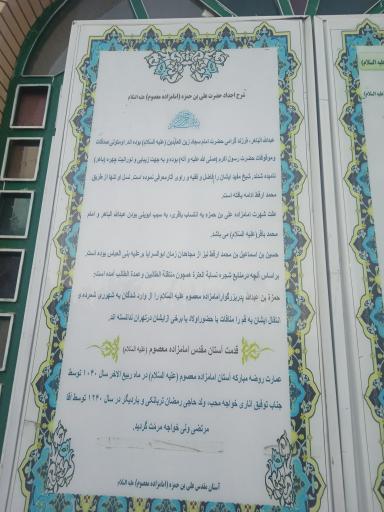 شرح اجداد حضرت علی بن حمزه (امامزاده معصوم) علیه السلام
عبدالله الباهر، فرزند گرامی حضرت امام سجاد زین العابدین (علیه السلام) بوده اند. او متولی صدقات
وموقوفات حضرت رسول اکرم (صلی الله علیه و آله) بوده و به جهت زیبایی و نورانیت چهره (باهر)
نامیده شدند. شیخ مفید ایشان را فاضل و فقیه و راوی آثار معرفی نموده است. نسل او تنها از طریق
محمد ارقط ادامه یافته است.
علت شهرت امامزاده علی بن حمزه به انتساب باقری، به سبب ابوینی بودن عبدالله الباهر و امام
محمد باقر (علیه السلام) می باشد.
حسین بن اسماعیل بن محمد ارقط نیز از مجاهدان زمان ابوالسرایا بر علیه بنی العباس بوده است.
براساس آنچه درمنابع شجره نسابة العترة همچون منتقلة الطالبیین و عمدة الطالب آمده است؛
حمزة بن عبدالله پدربزرگوار امامزاده معصوم علیه السلام را از وارد شدگان به شهرری شمرده و
انتقال ایشان به قم را منافات با حضور اولاد یا برخی از ایشان درتهران ندانسته اند.
قدمت آستان مقدس امامزاده معصوم (علیه السلام)
عمارت روضه مبارکه آستان امامزاده معصوم (علیه السلام) در ماه ربیع الاخر سال ۱۰۳۰ توسط
جناب توفیق آثاری خواجه محب، ولد حاجی رمضان تریالکی و باردیگر در سال ۱۲۴۰ توسط آقا
مرتضی ولی خواجه مرمت گردید.
آستان مقدس علی بن حمزه (امامزاده معصوم) علیه السلام